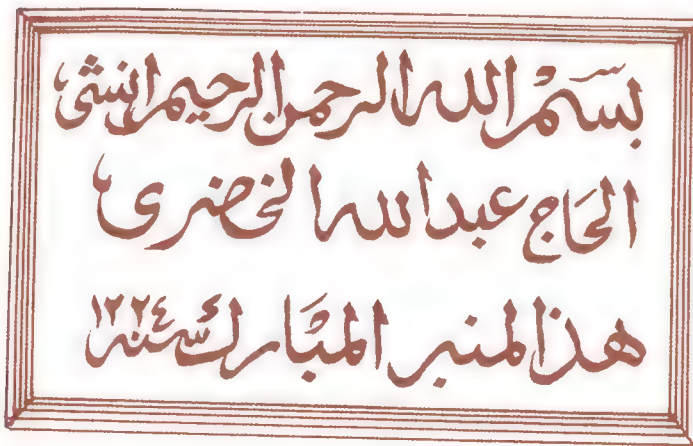 بسم الله الرحمن الرحيم انشئ
الحاج عبدالله الخضري
هذا المنبر المبارك سنه ١٢٢٤